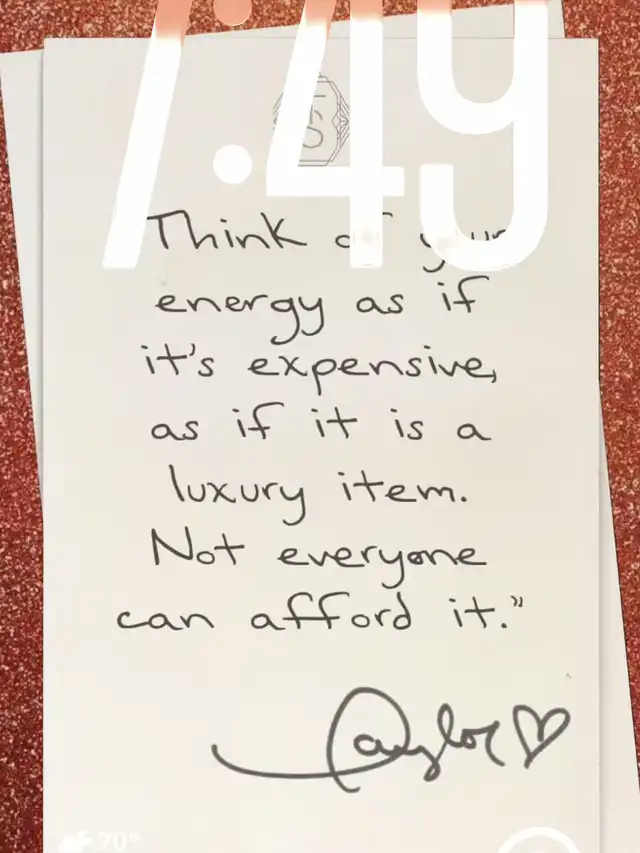 7:49
TS
Think of your
energy as if
it's expensive,
as if it is a
luxury item.
Not everyone
can afford it."
Taylor
70°